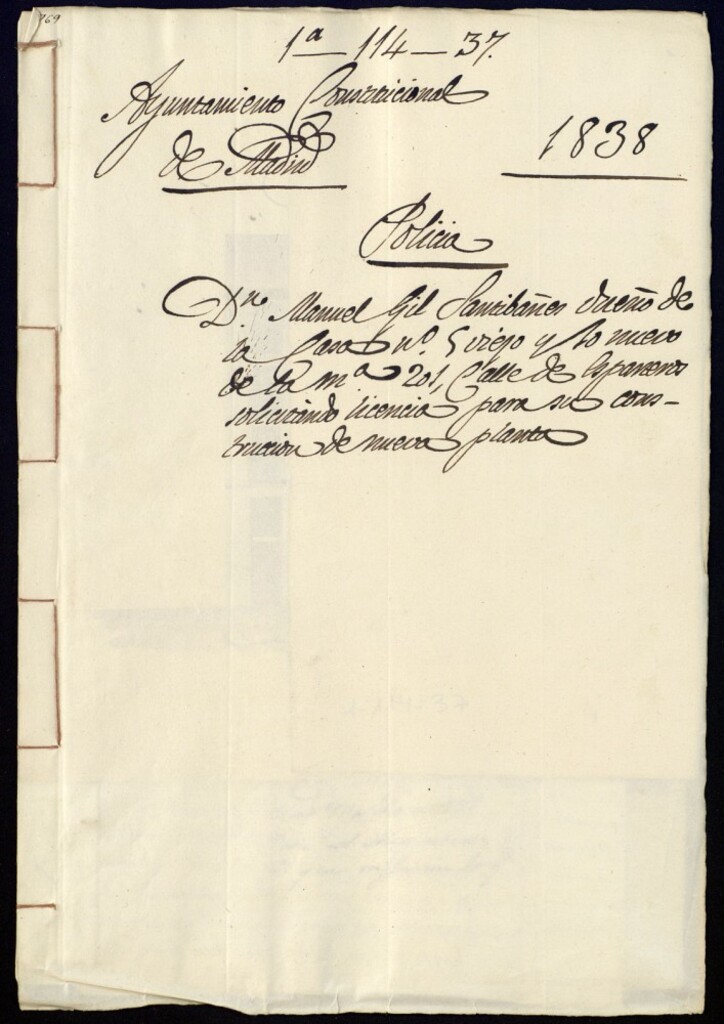 1ª — 114 — 37.
Ayuntamiento Constitucional
de Madrid
1838
Policia
Dn. Manuel Gil Santibañes dueño de
la Casa nº. 5 viejo y 10 nuevo
de la mª 201, Calle de
solicitando licencia para su cons-
truccion de nueva planta
1-114-37